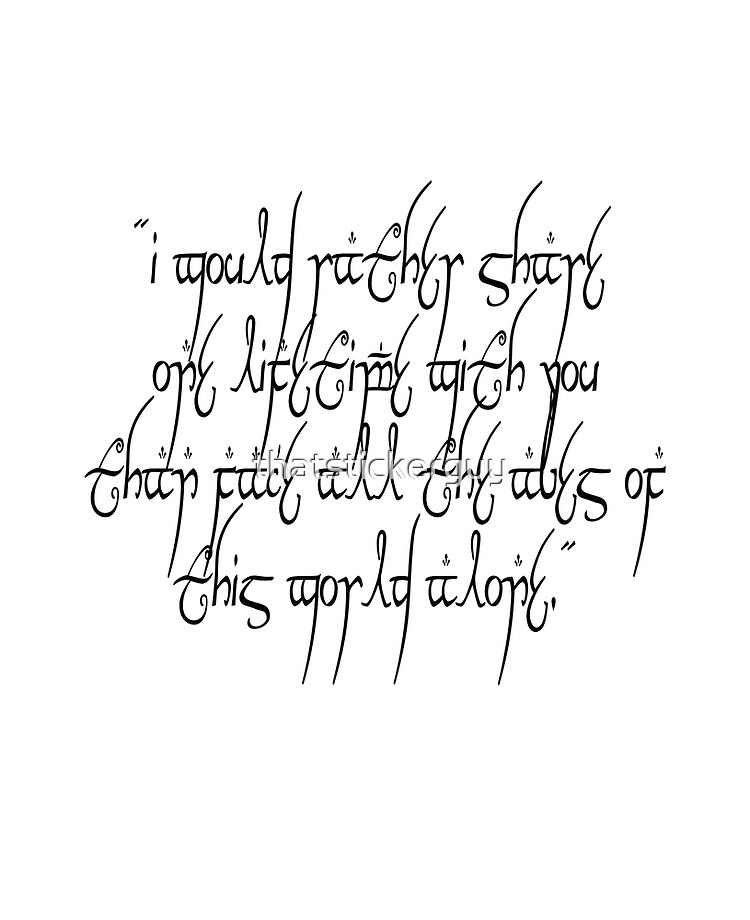 "i would rather share
one lifetime with you
than face all the ages of
thatstickerguy
this world alone."